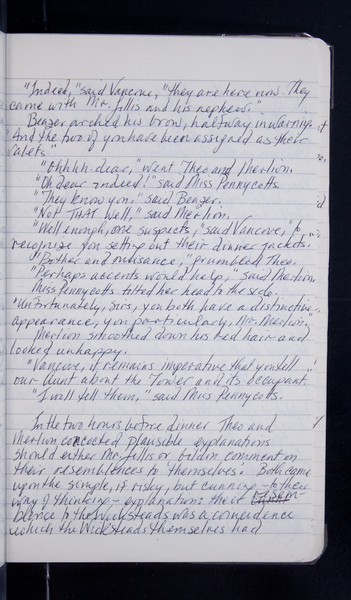 "Indeed," said Vancove, "they are here now. They
came with Mr. Jills and his nephew."
Benzer arched his brow, halfway in warning.
"And the two of you have been assigned as their
valets."
"Ohhhh dear," went Theo and Merlion.
"Oh dear indeed!" said Miss Pennycotts.
"They know you," said Benzer.
"Not THAT well," said Merlion.
"Well enough, one suspects," said Vancove, "to
recognize you setting out their dinner jackets."
"Bother and nuisance," grumbled Theo.
"Perhaps accents would help," said Merlion.
Miss Pennycotts tilted her head to the side.
"Unfortunately, sirs, you both have a distinctive
appearance, you particularly, Mr. Merlion."
Merlion smoothed down his red hair and
looked unhappy.
"Vancove, it remains imperative that you tell
our Aunt about the Tower and its occupant."
"I will tell them," said Miss Pennycotts.
In the two hours before dinner Theo and
Merlion concocted plausible explanations
should either Mr. Jills or comment on
their resemblences to themselves. Both came
upon the simple, if risky, but cunning - to their
way of thinking - explanation: their resem-
blence to the Wicksteads was a coincidence
which the Wicksteads themselves had